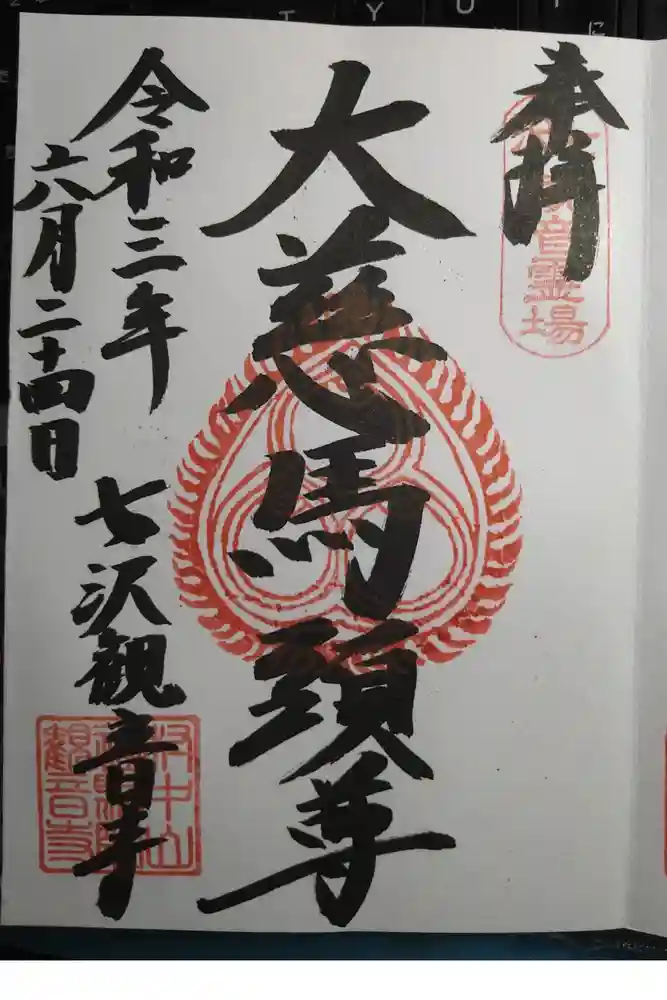 奉拝
音霊場
大慈馬頭尊
令和三年
六月二十四日
七沢観音寺
観音寺